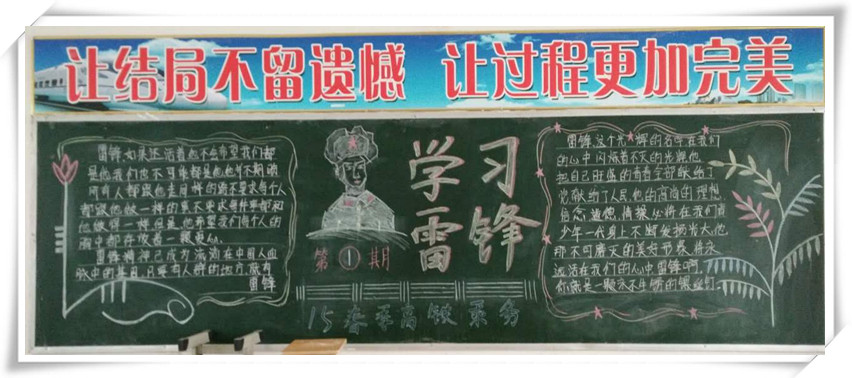 让结局不留遗憾 让过程更加完美
雷锋如果还活着他不会希望我们都
是他我们也不可能都是他他不期盼
所有人都跟他走同样的路不要求每个人
都跟他做一样的事不要求每件事都和
他做得一样但是他希望我们每个人的
胸中都存放着一颗爱心
雷锋精神已成为流淌在中国人血
脉中的基因只要有人群的地方就有
雷锋
学习
雷锋
第①期
15春季高
雷锋这个光辉的名字在我们
的心中闪烁着不灭的光辉他
把自己旺盛的青春全部献给了
党献给了人民他的高尚的理想
信念道德情操必将在我们青
少年一代身上不断发扬光大他
那不可磨灭的美好形象将永
远活在我们的心中雷锋啊
你就是一颗永不生锈的螺丝钉